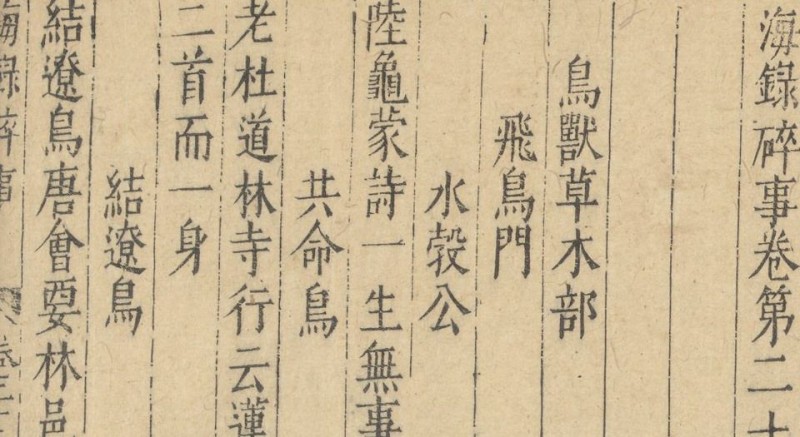 海錄碎事卷第二十
鳥獸草木部
飛鳥門
水㲉公
陸龜蒙詩一生無事
共命鳥
老杜道林寺行云蓮
二首而一身
結遼鳥
結遼鳥唐會要林邑
海錄碎事